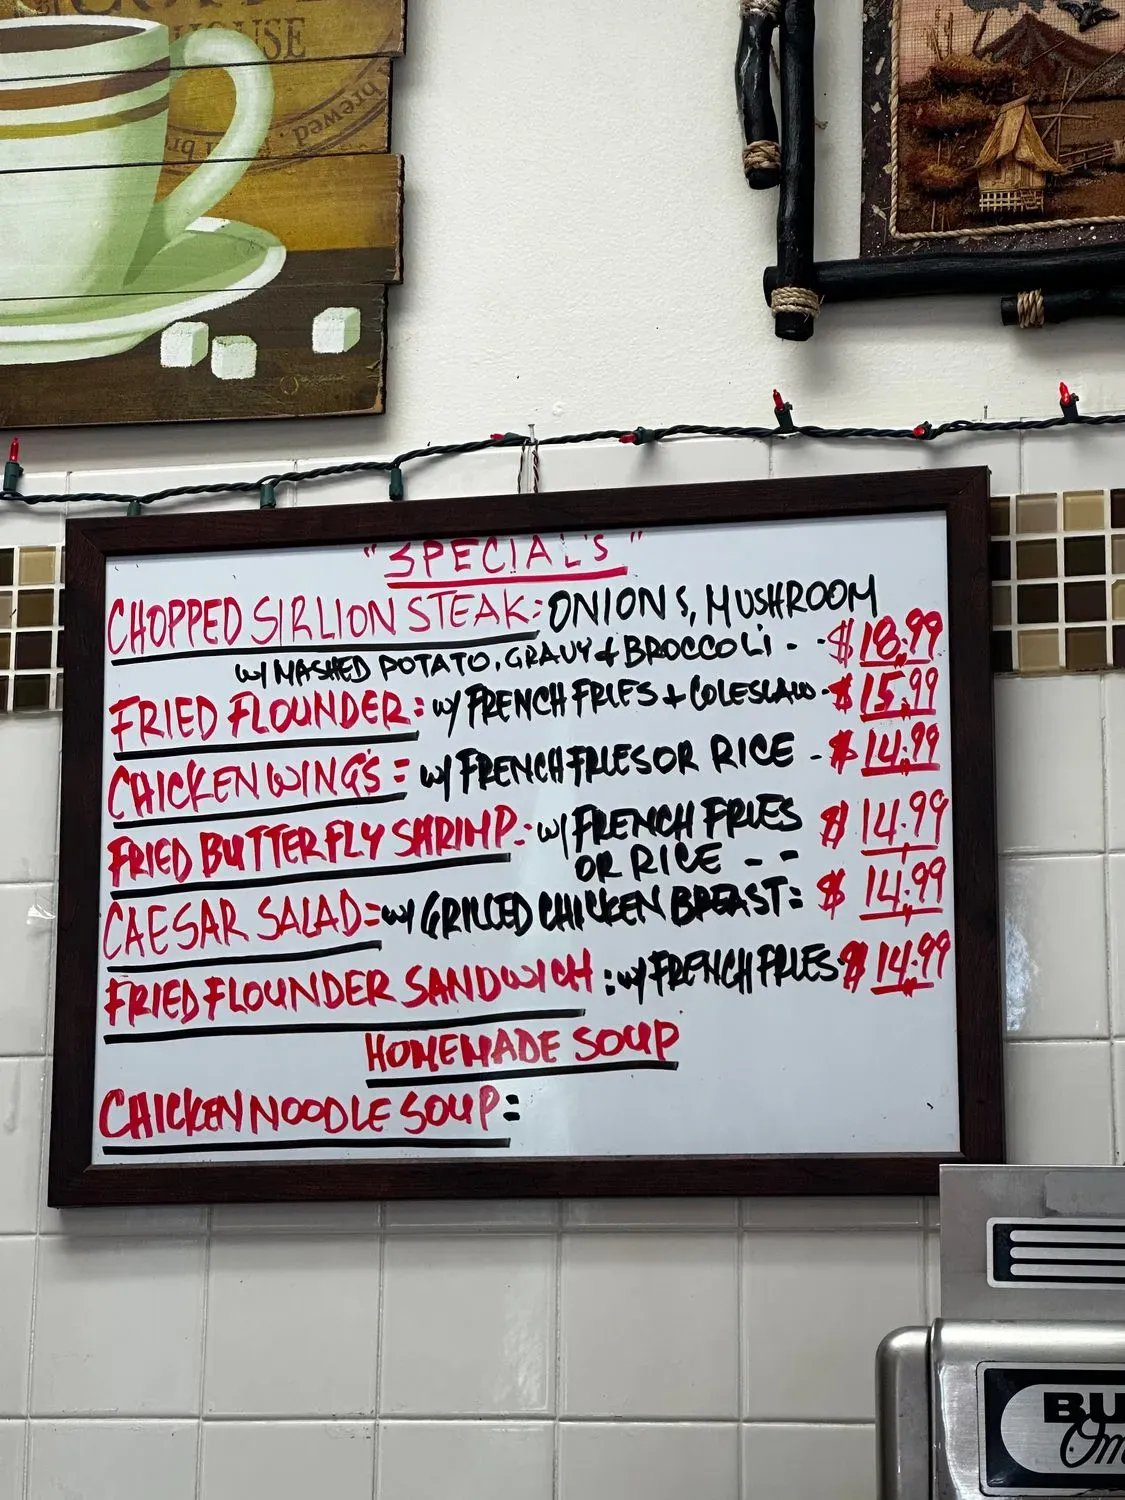 HOUSE
brewed
"SPECIAL'S"
CHOPPED SIRLION STEAK: ONIONS, MUSHROOM
W/ MASHED POTATO, GRAVY & BROCCOLI - - $18.99
FRIED FLOUNDER: W/ FRENCH FRIES + COLESLAW - $15.99
CHICKEN WING'S = W/ FRENCH FRIES OR RICE - $14.99
FRIED BUTTERFLY SHRIMP: W/ FRENCH FRIES $14.99
OR RICE - -
CAESAR SALAD = W/ GRILLED CHICKEN BREAST: $14.99
FRIED FLOUNDER SANDWICH: W/ FRENCH FRIES $14.99
HOMEMADE SOUP
CHICKEN NOODLE SOUP:
BU
Om